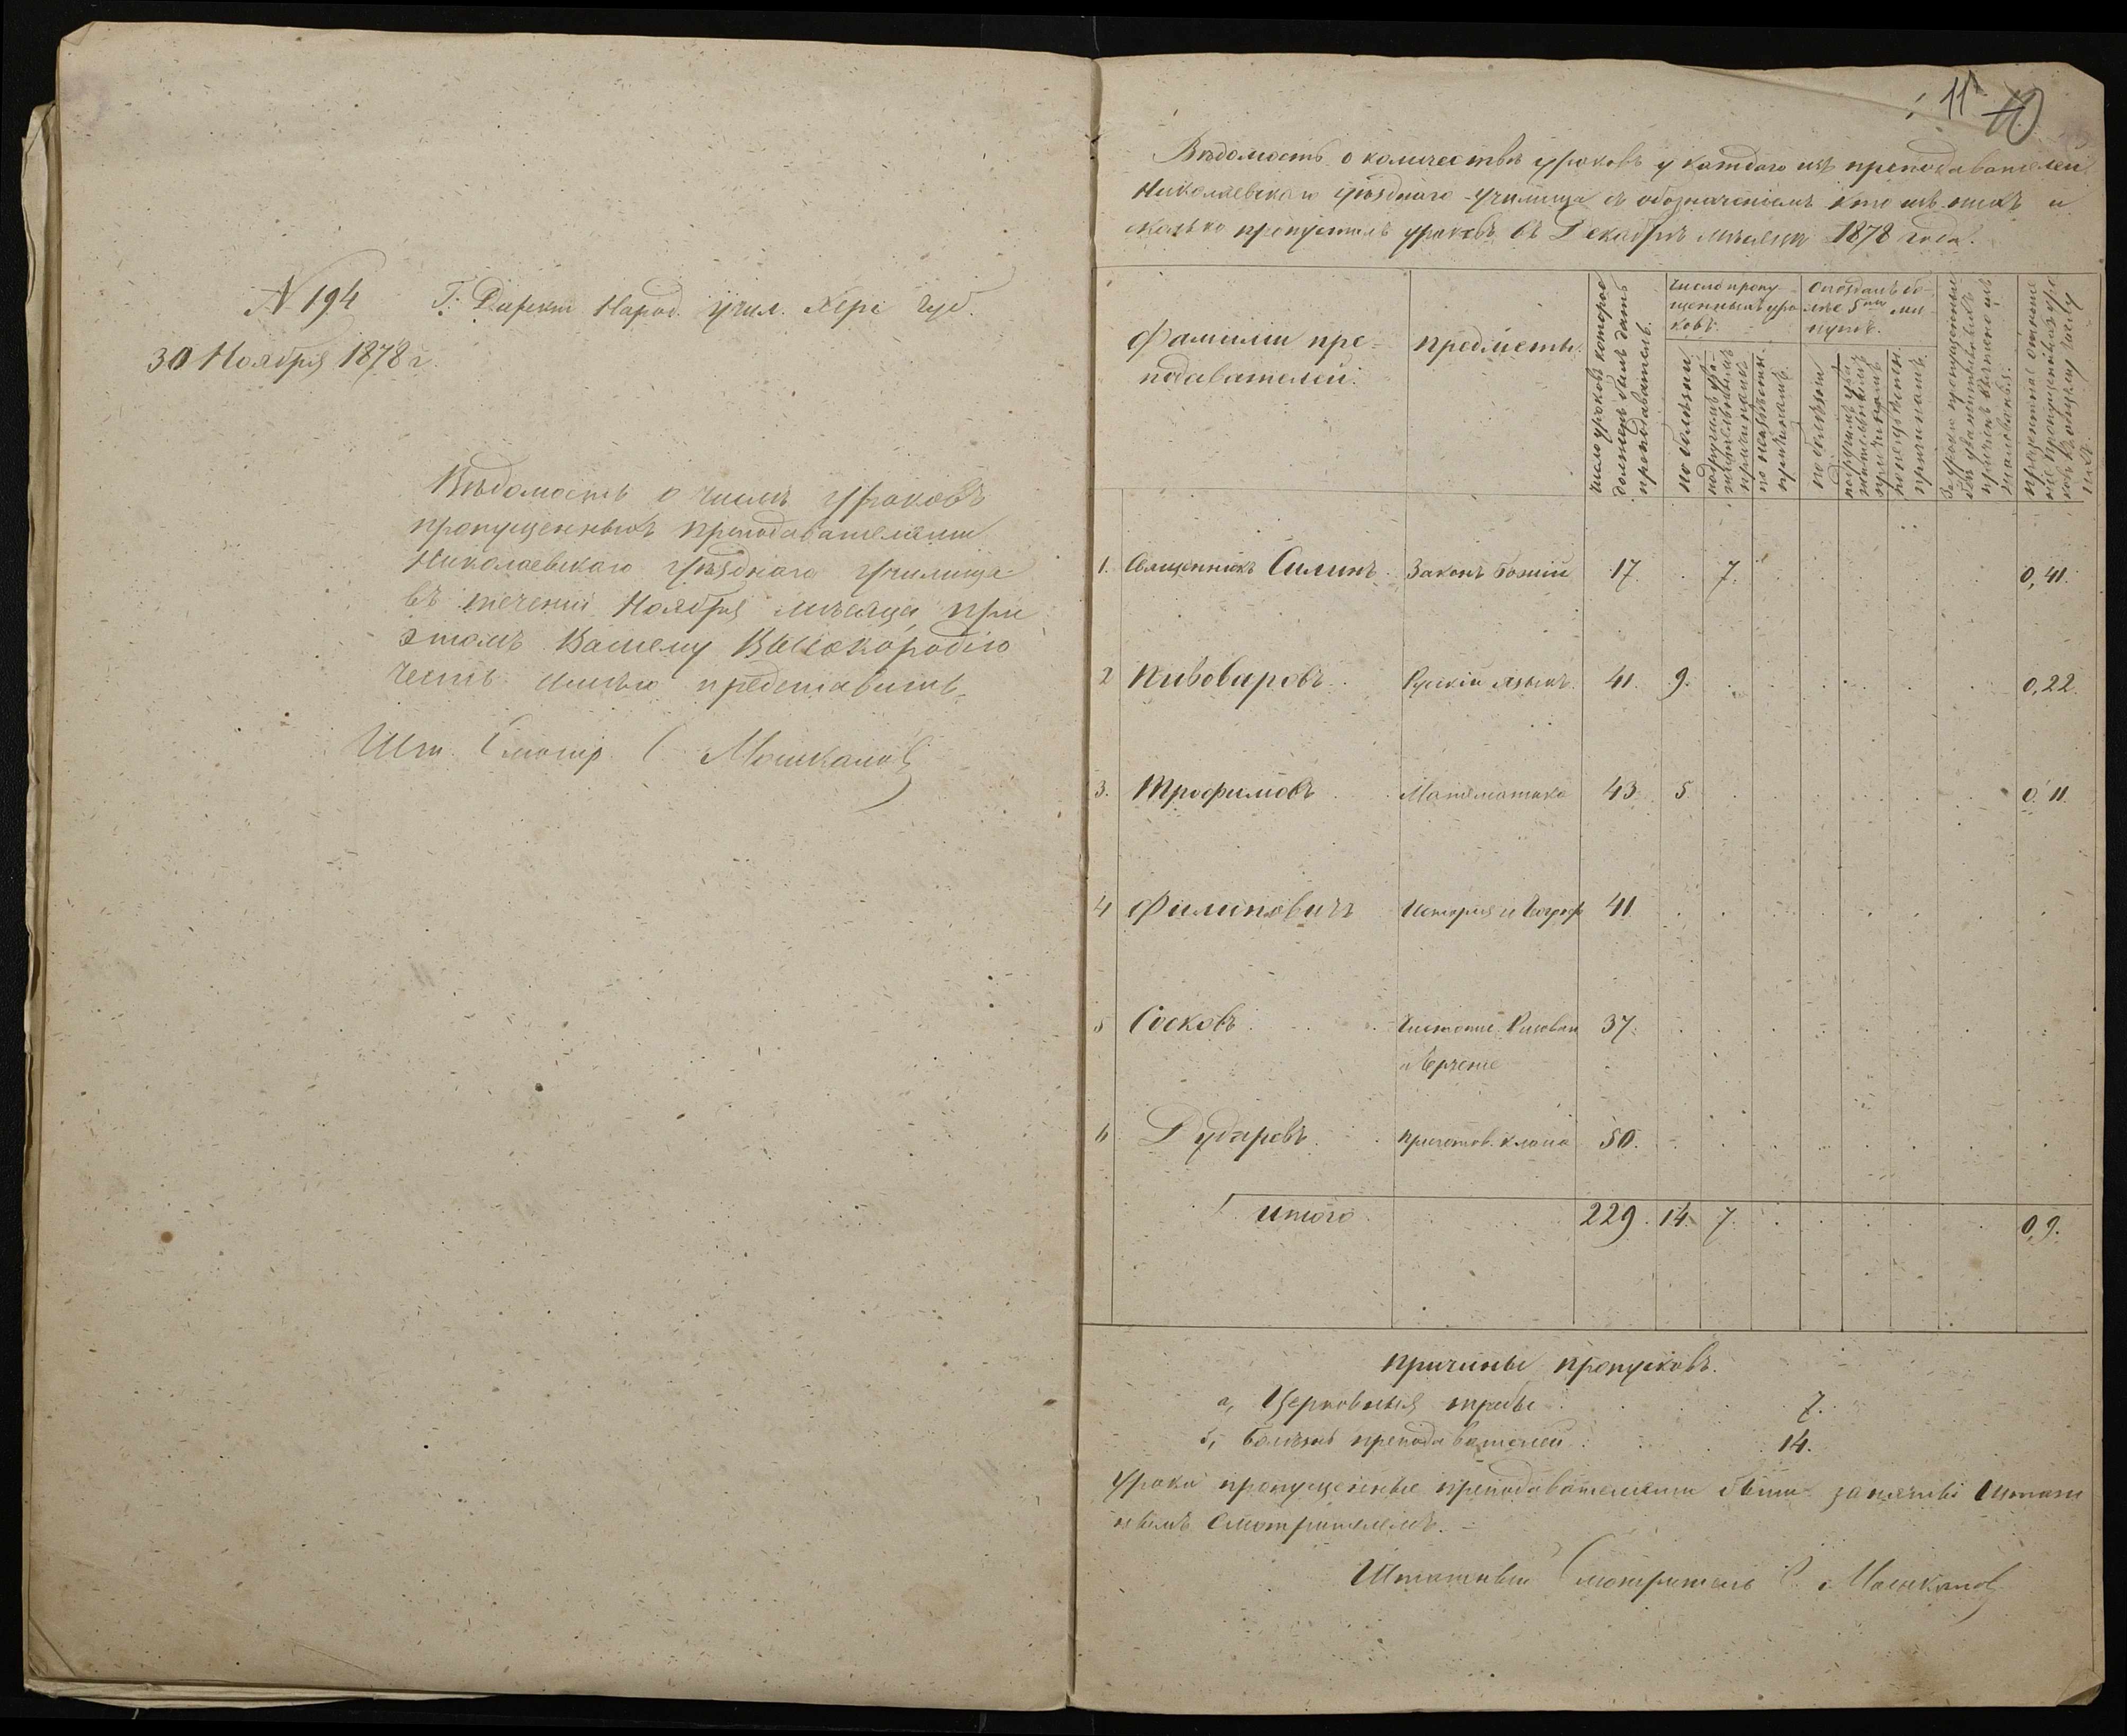 № 194
Г. Директ. Народ. учил. Херс. губ.
30 Ноября 1878 г.
Вѣдомость о числѣ уроковъ
пропущенныхъ преподавателями
Николаевскаго уѣзднаго училища
въ теченіи Ноября мѣсяца, при
этомъ Вашему Высокородію
честь имѣю представить.
Шт. Смотр.
11
10
Вѣдомость о количествѣ уроковъ у каждаго изъ преподавателей
Николаевскаго уѣзднаго училища съ обозначеніемъ кто изъ нихъ и
сколько пропустилъ уроковъ въ Декабрѣ мѣсяцѣ 1878 года.
Фамиліи пре-
подавателей.
Предметы.
Число уроковъ которое
долженъ былъ дать
преподаватель.
Число пропу-
щенныхъ уро-
ковъ.
по болѣзни
по другимъ ува-
жительнымъ
причинамъ
по неизвѣстн.
причинамъ.
Опоздалъ бо-
лѣе 5ти ми-
нутъ.
по болѣзни
по другимъ ува-
жительнымъ
причинамъ
по неизвѣстн.
причинамъ.
За уроки пропущенные
безъ уважительныхъ
причинъ вычтено изъ
жалованья.
Процентное отноше-
ніе пропущенныхъ уро-
ковъ къ общему числу
ихъ.
1. Священникъ Силинъ. Законъ Божій 17. 7. 0,41.
2 Пивоваровъ. Русскій языкъ. 41. 9. 0,22.
3. Трофимовъ Математика 43. 5. 0,11.
4 Филиповичъ Исторія и Географ 41
5 Сосковъ. Чистопис. Рисован 37.
и Черченіе
6 Дударовъ. Приготов. классъ 50.
Итого 229. 14. 7. 0,9.
Причины пропусковъ.
а, Церковныя требы 7.
б, Болѣзнь преподавателей. 14.
Уроки пропущенные преподавателями были заняты Штат
нымъ Смотрителемъ.
Штатный Смотритель